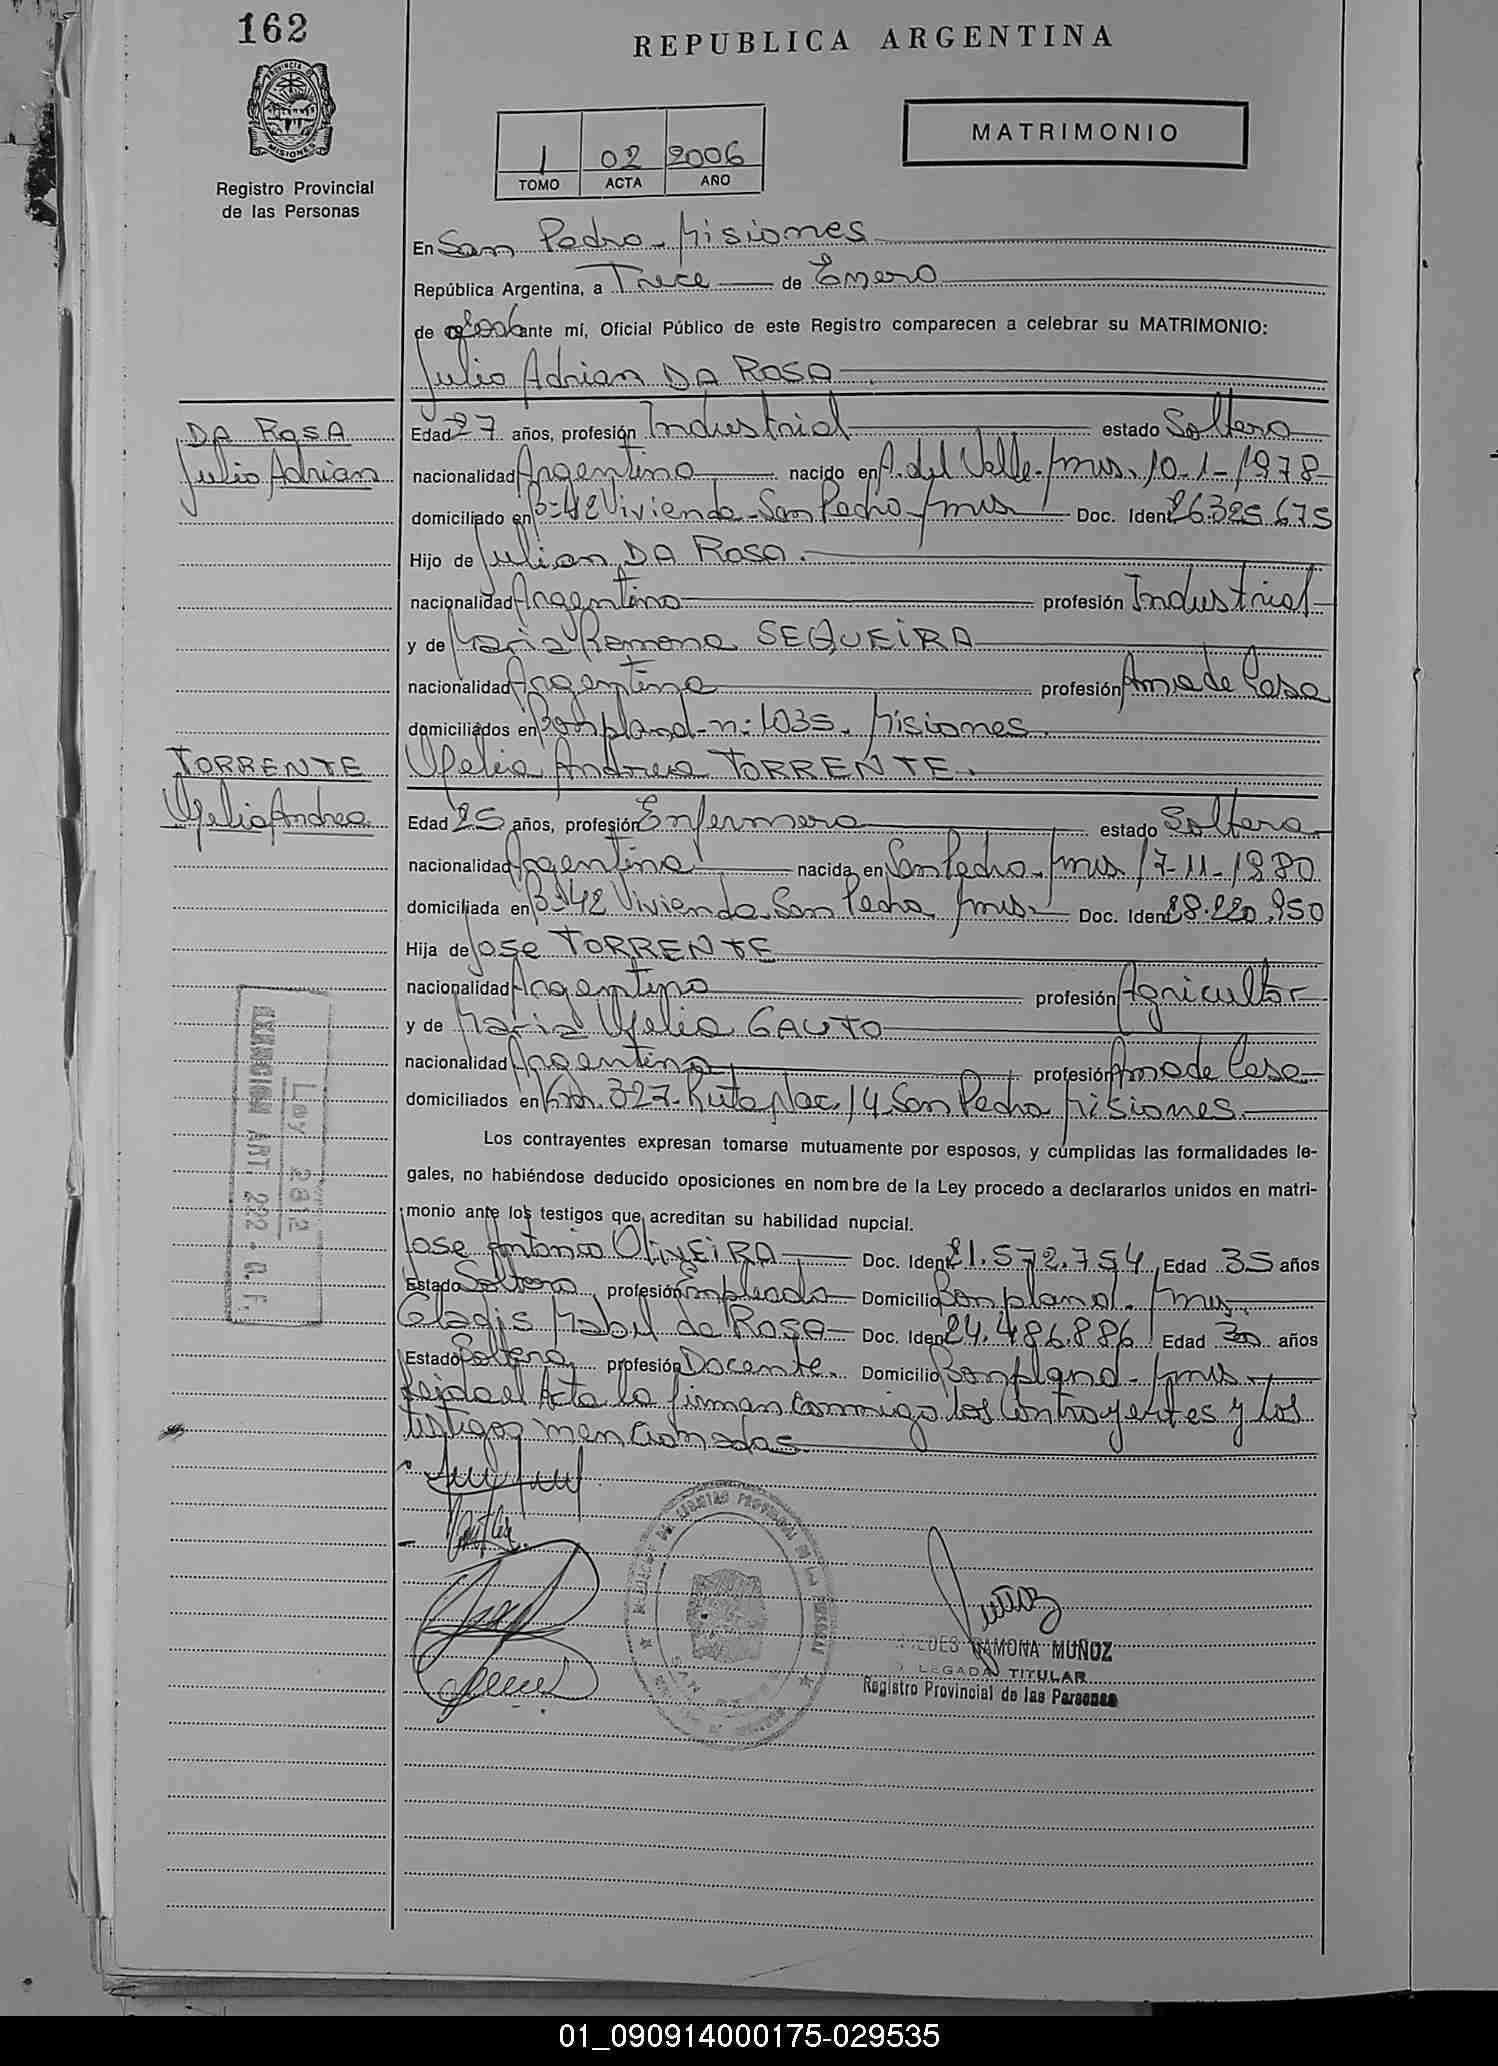 162
REPUBLICA ARGENTINA
PROVINCIA DE
MISIONES
MATRIMONIO
1 02 2006
TOMO ACTA AÑO
Registro Provincial
de las Personas
En San Pedro - Misiones
República Argentina, a Trece de Enero
de 2006 ante mí, Oficial Público de este Registro comparecen a celebrar su MATRIMONIO:
Julio Adrian DA ROSA
DA ROSA
Julio Adrian
Edad 27 años, profesión Industrial estado Soltero
nacionalidad Argentino nacido en A. del Valle - Mnes. 10-1-1978
domiciliado en Bº 42 Vivienda - San Pedro - Mnes Doc. Ident 26.325.675
Hijo de Julian DA ROSA.
nacionalidad Argentino profesión Industrial
y de Maria Ramona SEQUEIRA
nacionalidad Argentina profesión Ama de Casa
domiciliados en Bonpland - n: 1035. Misiones.
TORRENTE
Ofelia Andrea
Ofelia Andrea TORRENTE.
Edad 25 años, profesión Enfermera estado Soltera
nacionalidad Argentina nacida en San Pedro - Mnes 17-11-1980
domiciliada en Bº 42 Vivienda San Pedro Mnes Doc. Ident 28.220.950
Hija de Jose TORRENTE
nacionalidad Argentino profesión Agricultor
y de Maria Ofelia GAUTO
nacionalidad Argentina profesión Ama de Casa
domiciliados en Km. 327 - Ruta Nac. 14. San Pedro Misiones
Los contrayentes expresan tomarse mutuamente por esposos, y cumplidas las formalidades le-
gales, no habiéndose deducido oposiciones en nombre de la Ley procedo a declararlos unidos en matri-
monio ante los testigos que acreditan su habilidad nupcial.
Ley 2812
EXENCION ART. 222 - C. F.
Jose Antonio OLIVEIRA Doc. Ident 21.572.754 Edad 35 años
Estado Soltero, profesión Empleado Domicilio Bonpland. Mnes.
Gladis Mabel da ROSA Doc. Ident 24.486.886 Edad 30 años
Estado Soltera profesión Docente. Domicilio Bonpland - Mnes
Leida el Acta la firman conmigo los Contrayentes y los
testigos mencionados
RAMONA MUÑOZ
DELEGADA TITULAR
Registro Provincial de las Personas
01_090914000175-029535